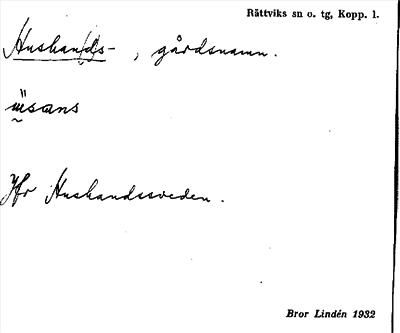 Rättviks sn o. tg, Kopp. l.
Hushan(d)s- , gårdsnamn.
Jfr Hushandssveden.
Bror Lindén 1932